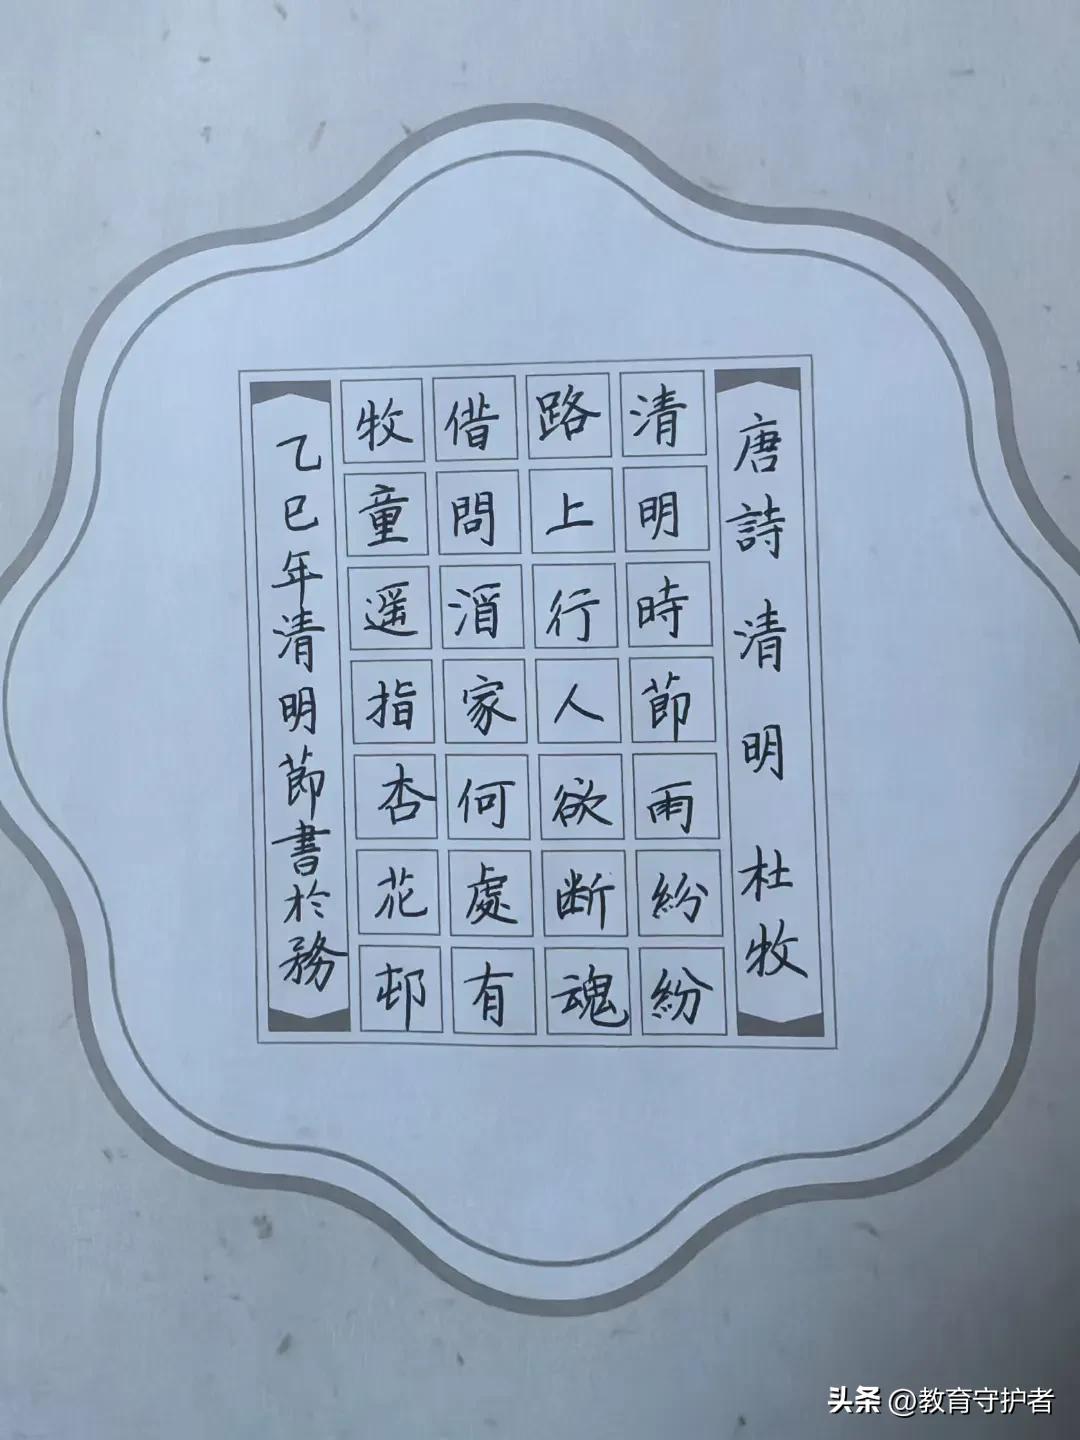 唐詩清明 杜牧
清明時節雨紛紛
路上行人欲断魂
借問酒家何處有
牧童遥指杏花邨
乙巳年清明節書於務
头条 @教育守护者